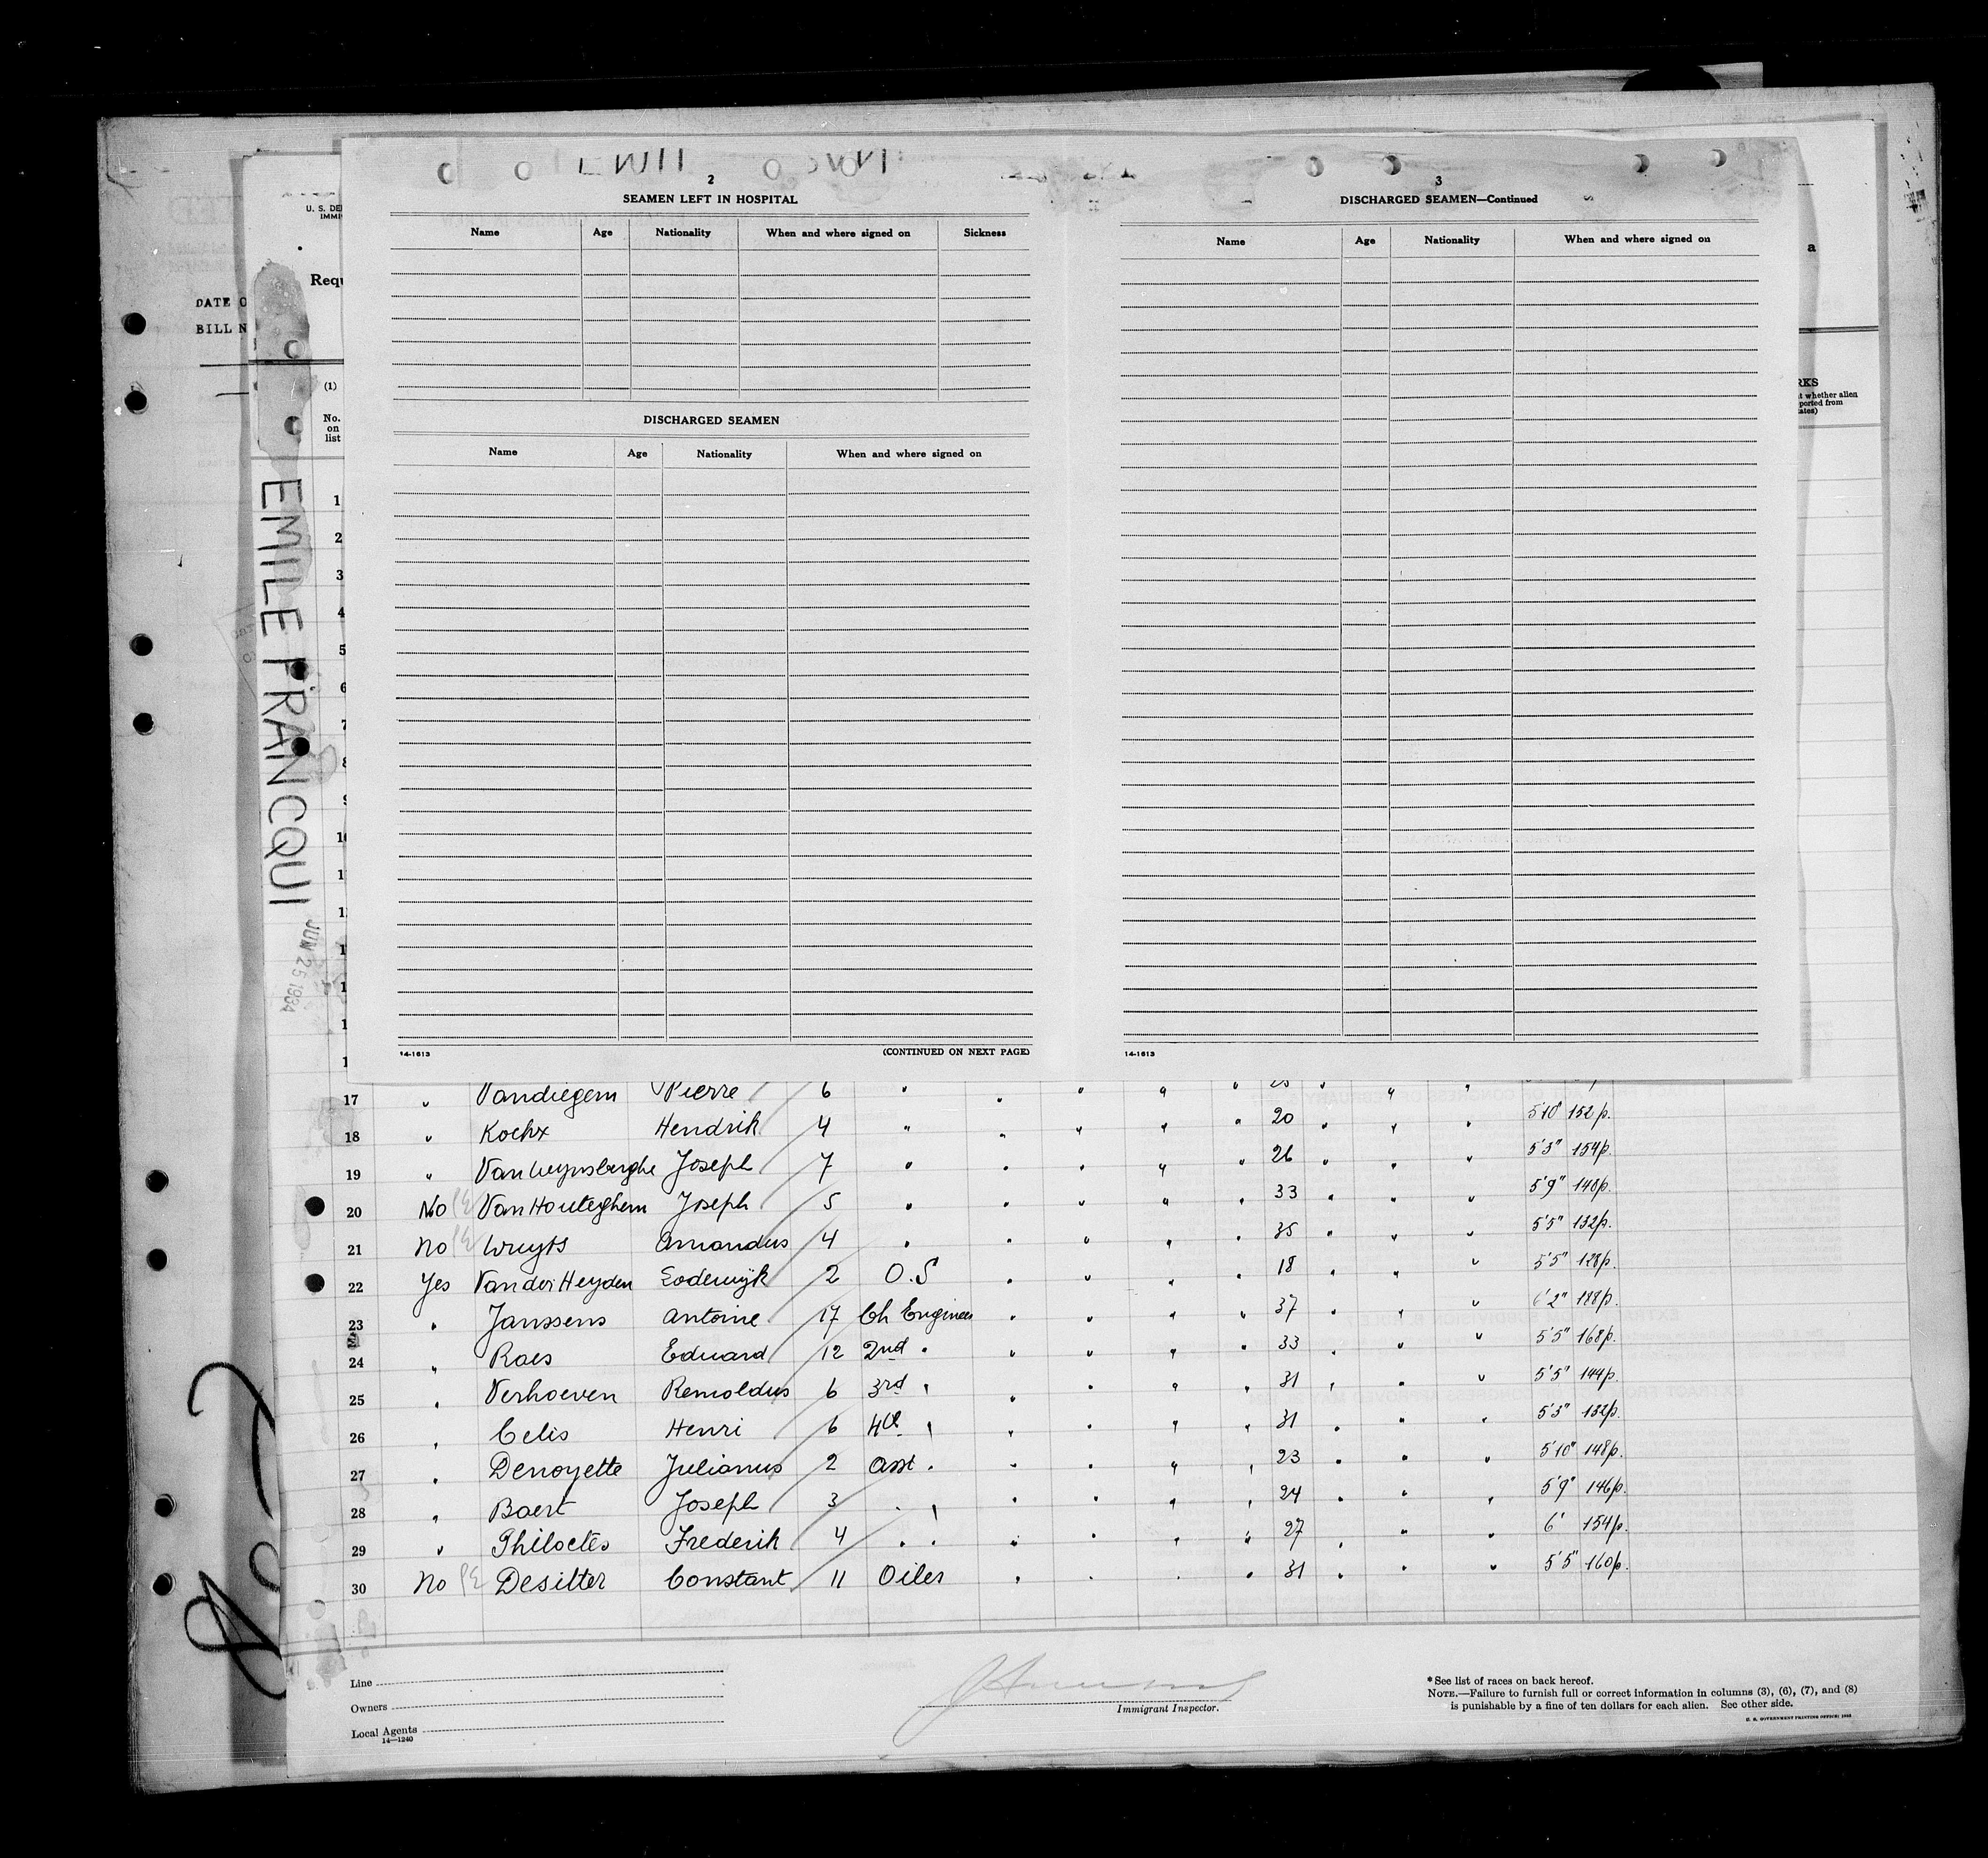 2
SEAMEN LEFT IN HOSPITAL
Name Age Nationality When and where signed on Sickness
DISCHARGED SEAMEN
Name Age Nationality When and where signed on
14-1613 (CONTINUED ON NEXT PAGE)
3
DISCHARGED SEAMEN—Continued
Name Age Nationality When and where signed on
14-1613
U. S. DE
IMMI
Requ
DATE O
BILL N
(1)
No.
on
list
a
RKS
t whether alien
ported from
tates)
EMILE FRANCQUI
JUN 25 1934
1
2
3
4
5
6
7
8
9
17 " Vandiegem Pierre 6 " " " " "
18 " Kockx Hendrik 4 " " " " " 20 " " " 5'10" 152 p.
19 " Van Wynsberghe Joseph 7 " " " " " 26 " " " 5'3" 154 p.
20 No PE Van Houteghem Joseph 5 " " " " " 33 " " " 5'9" 140 p.
21 No PE Wuyts Amandus 4 " " " " " 35 " " " 5'5" 132 p.
22 Yes Van der Heyden Lodewyk 2 O.S " " " " 18 " " " 5'5" 128 p.
23 " Janssens Antoine 17 Ch Engineer " " " " 37 " " " 6'2" 188 p.
24 " Raes Eduard 12 2nd " " " " " 33 " " " 5'5" 168 p.
25 " Verhoeven Remoldus 6 3rd " " " " " 31 " " " 5'5" 144 p.
26 " Celis Henri 6 4th " " " " " 31 " " " 5'3" 132 p.
27 " Denoyette Julianus 2 Asst " " " " " 23 " " " 5'10" 148 p.
28 " Baert Joseph 3 " " " " " " 24 " " " 5'9" 146 p.
29 " Philoctès Frederik 4 " " " " " " 27 " " " 6' 154 p.
30 No PE Desitter Constant 11 Oiler " " " " 31 " " " 5'5" 160 p.
Line
Owners
Local Agents
14—1240
Immigrant Inspector.
* See list of races on back hereof.
NOTE.—Failure to furnish full or correct information in columns (3), (6), (7), and (8)
is punishable by a fine of ten dollars for each alien. See other side.
U. S. GOVERNMENT PRINTING OFFICE: